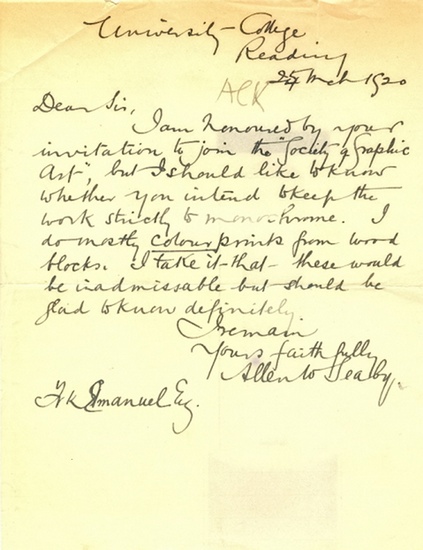 University College
Reading
24 Mch 1920
ACK
Dear Sir,
I am honoured by your
invitation to join the "Society of Graphic
Art", but I should like to know
whether you intend to keep the
work strictly to monochrome. I
do mostly colour prints from wood
blocks. I take it that these would
be inadmissable but should be
glad to know definitely.
I remain
Yours faithfully
Allen W Seaby.
F. k Emanuel Esq.